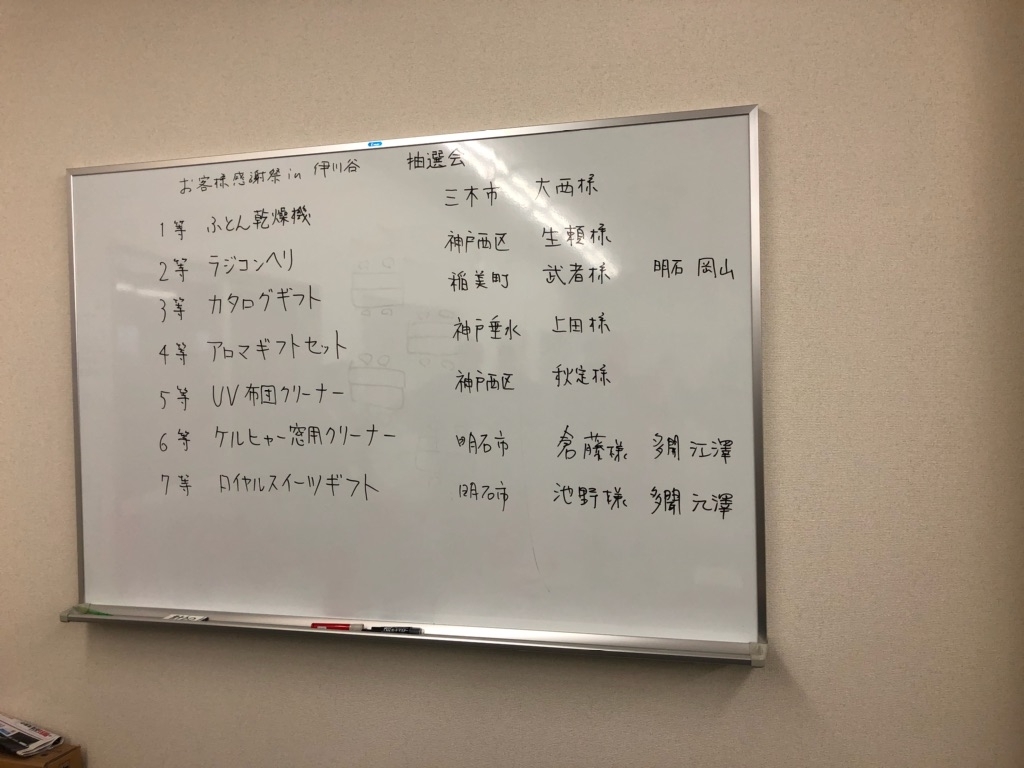 お客様感謝祭 in 伊川谷 抽選会
1等 ふとん乾燥機 三木市 大西様
2等 ラジコンヘリ 神戸西区 生頼様
3等 カタログギフト 稲美町 武者様 明石 岡山
4等 アロマギフトセット 神戸垂水 上田様
5等 UV布団クリーナー 神戸西区 秋定様
6等 ケルヒャー窓用クリーナー 明石市 倉藤様 多聞 江澤
7等 ロイヤルスイーツギフト 明石市 池野様 多聞 元澤